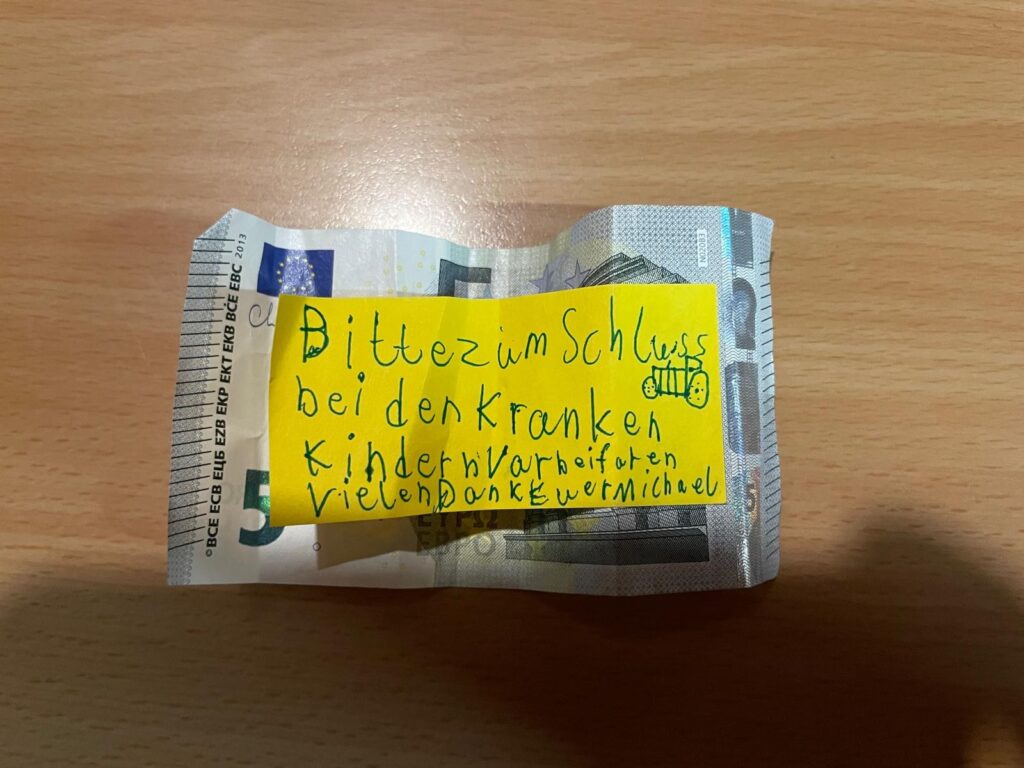 © BCE ECB ЕЦБ EZB EKP EKT EKB BĊE EBC 2013
Ch
Bitte zum Schluss
bei den Kranken
Kindern Varbeifaren
Vielen Dank Euer Michael
5
ΕΥΡΩ
ЕВРО